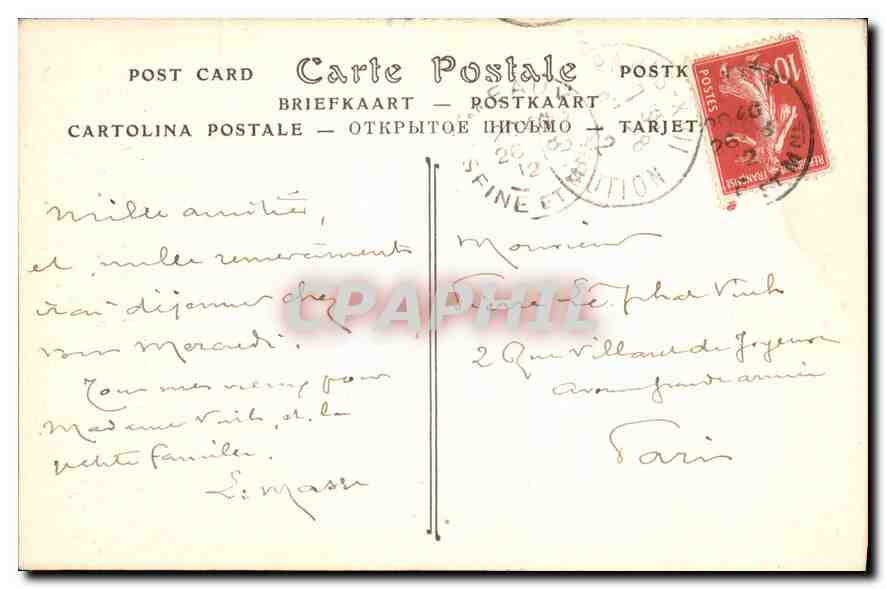 POST CARD Carte Postale POSTK
BRIEFKAART — POSTKAART
CARTOLINA POSTALE — ОТКРЫТОЕ ПИСЬМО — TARJET
10
POSTES
REPUBLIQUE FRANÇAISE
SEINE ET M
26
12
DISTRIBUTION
Mille amitiés,
et mille remerciements
irai déjeuner chez
vous Mercredi.
Tous mes vœux pour
Madame Vinh, et la
petite famille.
L. Masse
Monsieur
Pierre Lê-phat Vinh
2 Rue Villaret de Joyeuse
Avenue grande armée
Paris
CPAPHIL